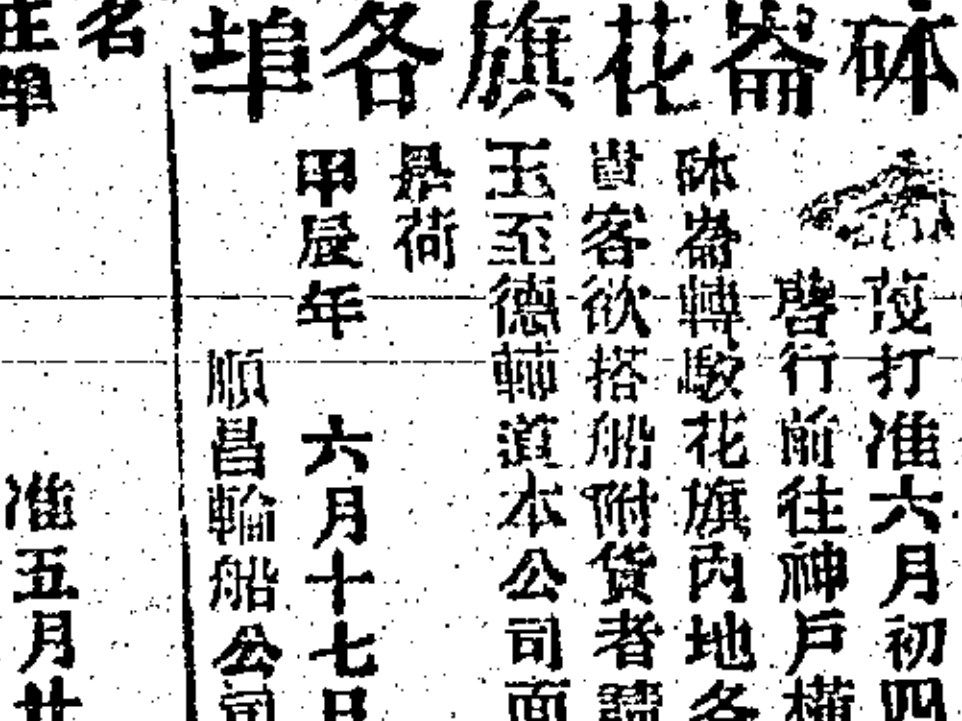 砵崙花旗各埠
茂打准六月初四
啓行前往神戶橫
砵崙轉駁花旗內地各
貴客欲搭船附貨者請
玉至德輔道本公司面
是荷
甲辰年 六月十七日
順昌輪船公司
名
埠
准五月廿